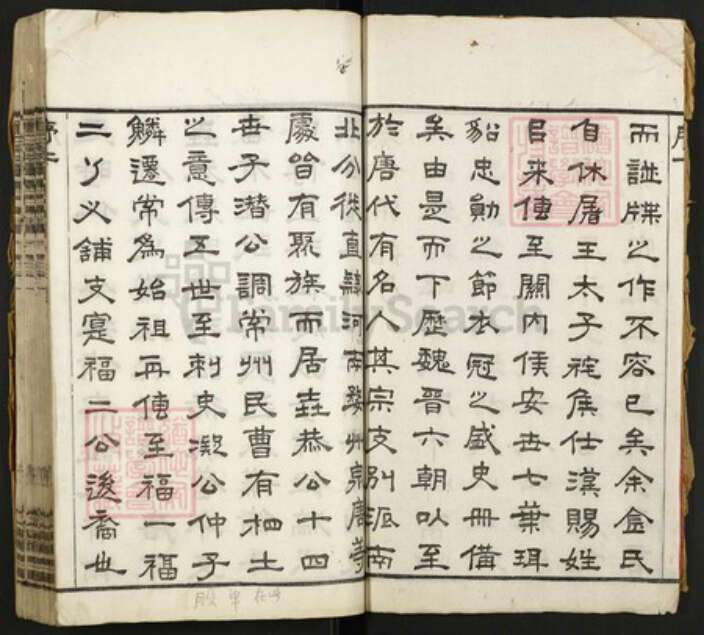 而譜牒之作不容已矣余金氏
自休屠王太子祗侯仕漢賜姓
目来傳至關內侯安世七葉珥
貂忠勛之節衣冠之盛史冊備
矣由是而下歷魏晋六朝以至
於唐代有名人其宗支別派南
北分徙直隸河南婺州泉唐等
處皆有聚族而居焉恭公十四
世子潜公調常州民曹有栖土
之意傳五世至刺史凝公仲子
鱗遷常為始祖再傳至福一福
二乃义鋪支寔福二公後裔也
FamilySearch